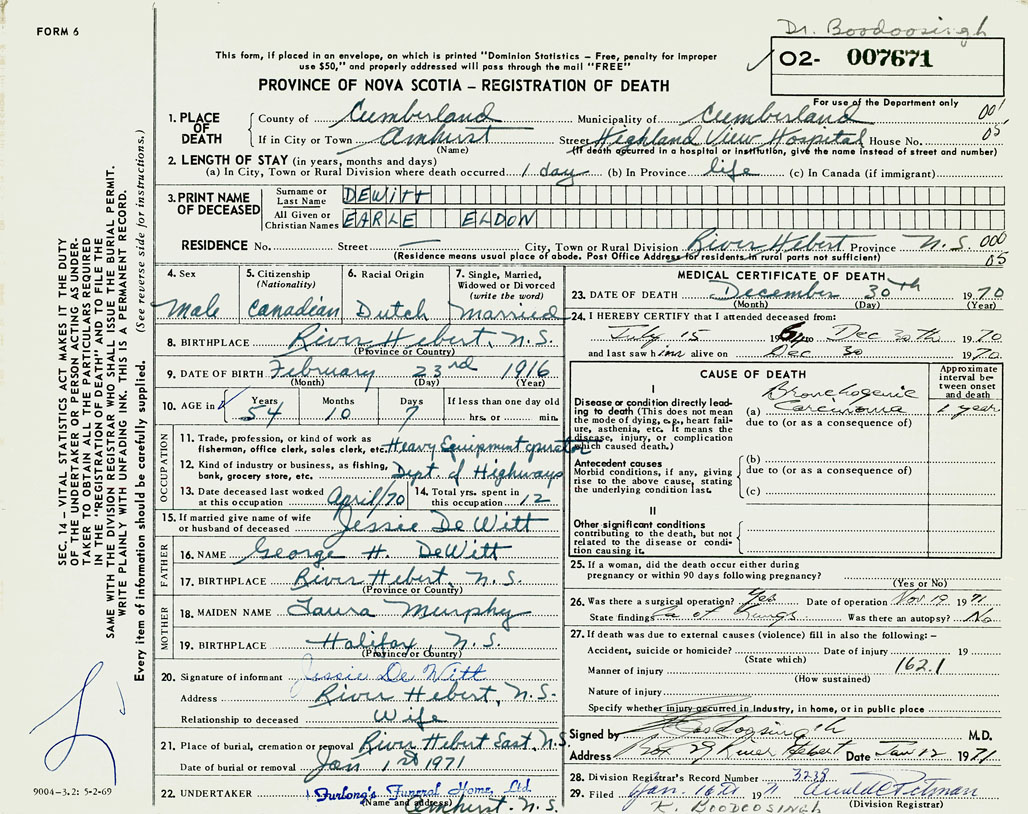 FORM 6
Dr. Boodoosingh
This form, if placed in an envelope, on which is printed "Dominion Statistics - Free, penalty for improper
use $50," and properly addressed will pass through the mail "FREE"
O2- 007671
PROVINCE OF NOVA SCOTIA - REGISTRATION OF DEATH
For use of the Department only
1. PLACE OF DEATH County of Cumberland Municipality of Cumberland 00'
If in City or Town Amhurst Street Highland View Hospital House No. 05
(Name) (If death occurred in a hospital or institution, give the name instead of street and number)
2. LENGTH OF STAY (in years, months and days)
(a) In City, Town or Rural Division where death occurred 1 day (b) In Province life (c) In Canada (if immigrant)
3. PRINT NAME OF DECEASED Surname or Last Name DEWITT
All Given or Christian Names EARLE ELDON
RESIDENCE No. Street — City, Town or Rural Division River Hebert Province N.S. 000
(Residence means usual place of abode. Post Office Address for residents in rural parts not sufficient) 05
4. Sex Male
5. Citizenship (Nationality) Canadian
6. Racial Origin Dutch
7. Single, Married, Widowed or Divorced (write the word) Married
8. BIRTHPLACE River Hebert, N.S.
(Province or Country)
9. DATE OF BIRTH February 23rd 1916
(Month) (Day) (Year)
10. AGE in Years Months Days If less than one day
54 10 7 hrs. or min.
OCCUPATION
11. Trade, profession, or kind of work as
fisherman, office clerk, sales clerk, etc. Heavy Equipment operator
12. Kind of industry or business, as fishing,
bank, grocery store, etc. Dept. of Highways
13. Date deceased last worked at this occupation April/70
14. Total yrs. spent in this occupation 12
15. If married give name of wife
or husband of deceased Jessie De Witt
FATHER
16. NAME George H. DeWitt
17. BIRTHPLACE River Hebert, N.S.
(Province or Country)
MOTHER
18. MAIDEN NAME Laura Murphy
19. BIRTHPLACE Halifax, N.S.
(Province or Country)
20. Signature of informant Jessie De Witt
Address River Hebert, N.S.
Relationship to deceased Wife
21. Place of burial, cremation or removal River Hebert East, N.S.
Date of burial or removal Jan 1st 1971
22. UNDERTAKER Furlong's Funeral Home, Ltd.
(Name and address) Amherst, N.S.
MEDICAL CERTIFICATE OF DEATH
23. DATE OF DEATH December 30th 1970
(Month) (Day) (Year)
24. I HEREBY CERTIFY that I attended deceased from:
July 15 19 to Dec 30th 1970
and last saw him alive on Dec 30 1970
CAUSE OF DEATH
Approximate interval between onset and death
I
Disease or condition directly leading to death (This does not mean the mode of dying, e.g., heart failure, asthenia, etc. It means the disease, injury, or complication which caused death.)
(a) Bronchogenic Carcinoma 1 year
due to (or as a consequence of)
Antecedent causes
Morbid conditions, if any, giving rise to the above cause, stating the underlying condition last.
(b)
due to (or as a consequence of)
(c)
II
Other significant conditions
contributing to the death, but not related to the disease or condition causing it.
25. If a woman, did the death occur either during
pregnancy or within 90 days following pregnancy?
(Yes or No)
26. Was there a surgical operation? Yes Date of operation Nov 19 1971
State findings Ca of Lungs Was there an autopsy? No
27. If death was due to external causes (violence) fill in also the following: -
Accident, suicide or homicide? Date of injury 19
(State which)
Manner of injury 162.1
(How sustained)
Nature of injury
Specify whether injury occurred in Industry, in home, or in public place
Signed by Boodoosingh M.D.
Address Box 29 River Hebert Date Jan 12 1971
28. Division Registrar's Record Number 3238
29. Filed Jan. 16th 1971 Arnold Pitman
(Division Registrar)
K. BOODOOSINGH
SEC. 14 - VITAL STATISTICS ACT MAKES IT THE DUTY
OF THE UNDERTAKER OR PERSON ACTING AS UNDER-
TAKER TO OBTAIN ALL THE PARTICULARS REQUIRED
IN THE "REGISTRATION OF DEATH" AND TO FILE THE
SAME WITH THE DIVISION REGISTRAR WHO SHALL ISSUE THE BURIAL PERMIT.
WRITE PLAINLY WITH UNFADING INK. THIS IS A PERMANENT RECORD.
Every item of information should be carefully supplied. (See reverse side for instructions.)
9004-3.2: 5-2-69